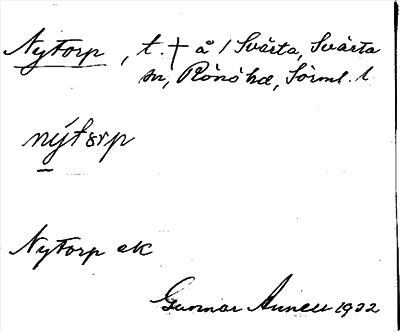 Nytorp, t. † å 1 Svärta, Svärta
sn, Rönö hd, Sörml. l
nýtorp
Nytorp ek
Gunnar Annell 1932